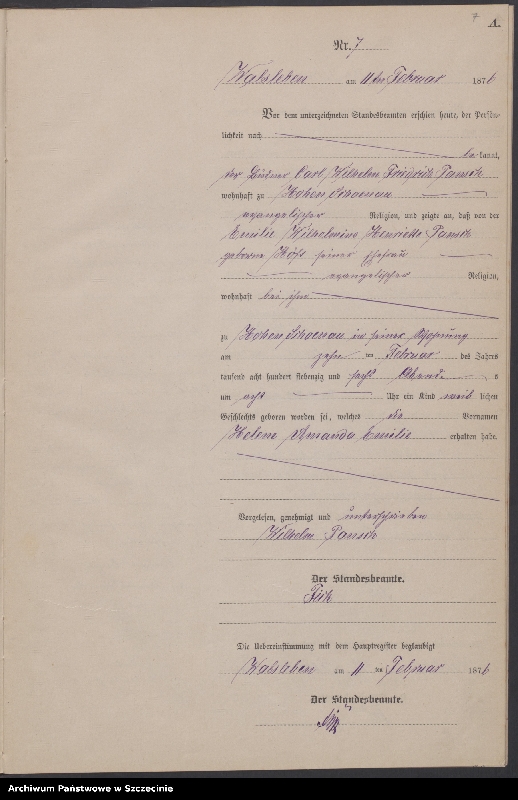 7
A.
Nr. 7
am 11ten Februar 1876
Vor dem unterzeichneten Standesbeamten erschien heute, der Persön-
lichkeit nach
be kannt,
der Büdner Carl Wilhelm Friedrich Pansch
wohnhaft zu Hohen Schoenau
evangelischer Religion, und zeigte an, daß von der
Emilie Wilhelmine Henriette Pansch
geborne seiner Ehefrau
evangelischer Religion,
wohnhaft bei ihm
zu Hohen Schoenau in seiner Wohnung
am zehn ten Februar des Jahres
tausend acht hundert siebenzig und sechs Abends
um acht Uhr ein Kind weib lichen
Geschlechts geboren worden sei, welches die Vornamen
Helene Amanda Emilie erhalten habe.
Vorgelesen, genehmigt und unterschrieben
Wilhelm Pansch
Der Standesbeamte.
Die Uebereinstimmung mit dem Hauptregister beglaubigt
am 11 ten Februar 1876
Der Standesbeamte.
Archiwum Państwowe w Szczecinie